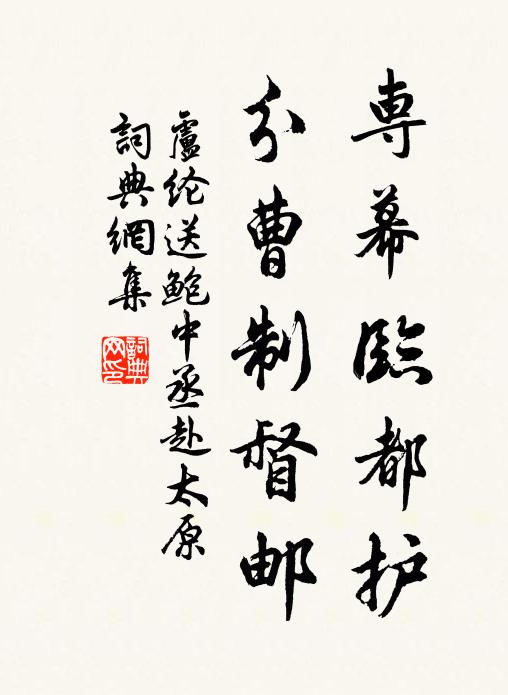 専幕臨都护
分曹制督邮
盧纶送鲍中丞赴太原
詞典網集
詞典網印